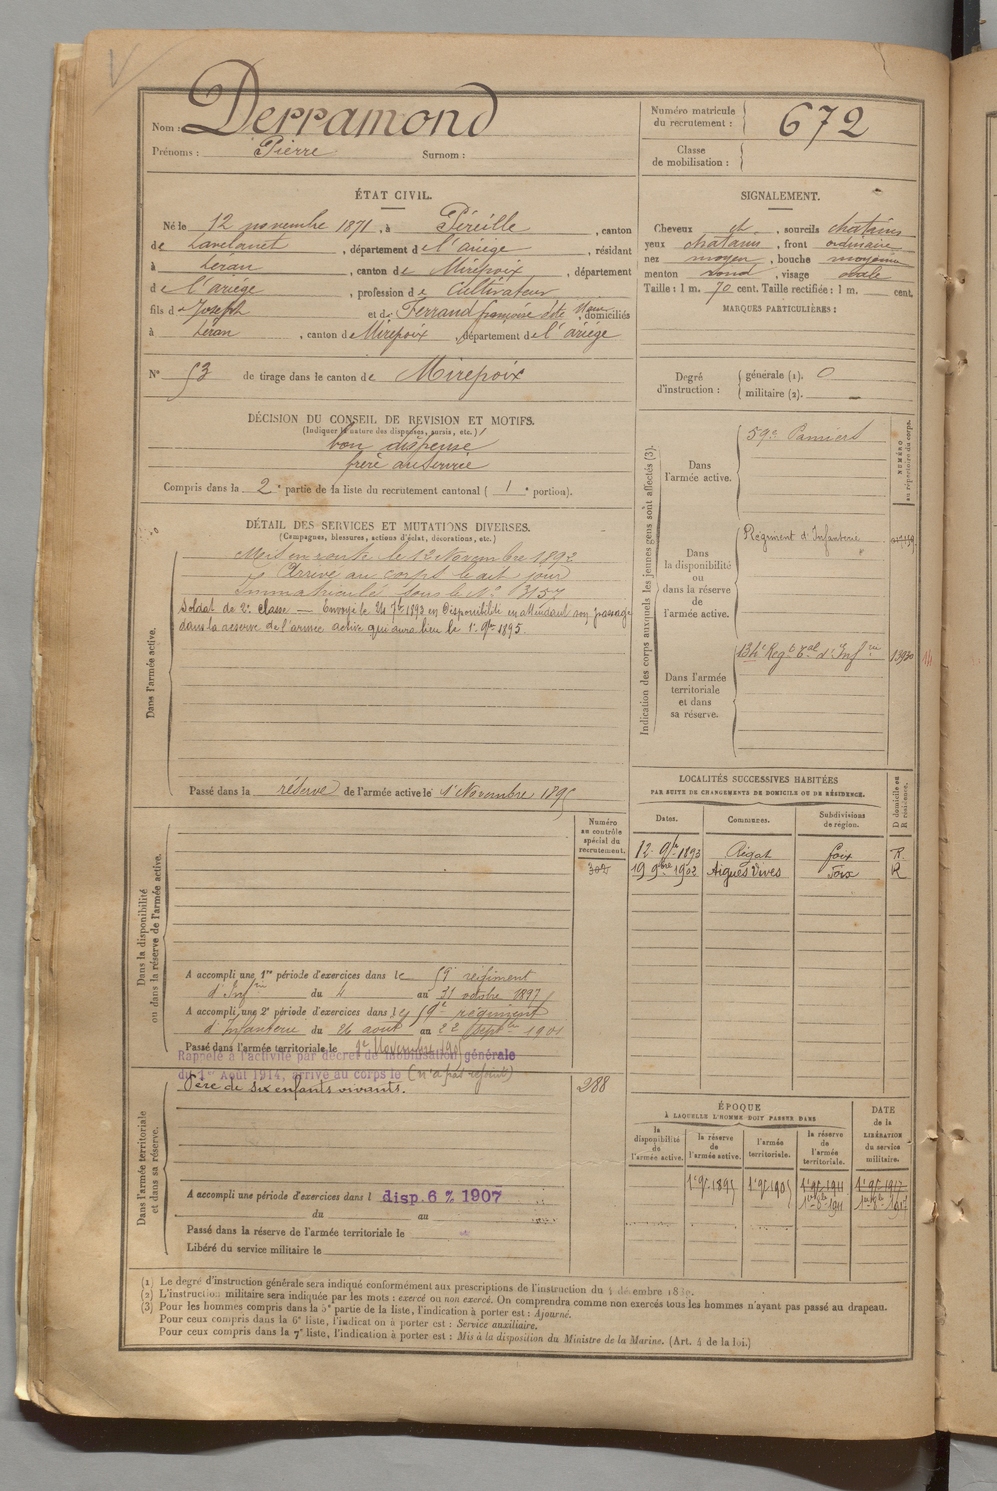 Nom : Derramond
Prénoms : Pierre Surnom :
Numéro matricule du recrutement : 672
Classe de mobilisation :
ÉTAT CIVIL.
Né le 12 novembre 1871, à Péreille, canton
de Lavelanet, département de l'ariège, résidant
à Léran, canton de Mirepoix, département
de l'ariège, profession de Cultivateur
fils de Joseph et de Ferrand françoise domiciliés
à Léran, canton de Mirepoix, département de l'ariége
N° 53 de tirage dans le canton de Mirepoix
SIGNALEMENT.
Cheveux et, sourcils chatains
yeux chatains, front ordinaire
nez moyen, bouche moyenne
menton rond, visage ovale
Taille : 1 m. 70 cent. Taille rectifiée : 1 m. cent.
MARQUES PARTICULIÈRES :
Degré d'instruction : générale (1). 0
militaire (2). —
DÉCISION DU CONSEIL DE REVISION ET MOTIFS.
(Indiquer la nature des dispenses, sursis, etc.)
bon dispensé
frère au service
Compris dans la 2e partie de la liste du recrutement cantonal (1e portion).
DÉTAIL DES SERVICES ET MUTATIONS DIVERSES.
(Campagnes, blessures, actions d'éclat, décorations, etc.)
Dans l'armée active.
Mis en route le 12 Novembre 1892
Arrivé au corps le dit jour
Immatriculé sous le N° 3157
Soldat de 2e classe — Envoyé le 24 7bre 1893 en Disponibilité en attendant son passage
dans la réserve de l'armée active qui aura lieu le 1er 9bre 1895.
Passé dans la réserve de l'armée active le 1er Novembre 1895
Indication des corps auxquels les jeunes gens sont affectés (3).
NUMÉRO au répertoire du corps.
Dans l'armée active.
59e Pamiers
Dans la disponibilité ou dans la réserve de l'armée active.
Régiment d'Infanterie
Dans l'armée territoriale et dans sa réserve.
134e Regt tal d'Infrie
LOCALITÉS SUCCESSIVES HABITÉES
PAR SUITE DE CHANGEMENTS DE DOMICILE OU DE RÉSIDENCE.
Dates. Communes. Subdivisions de région. D domicile ou R résidence.
12 9bre 1893 foix R.
19 9bre 1902 Aigues Vives Foix R
Dans la disponibilité ou dans la réserve de l'armée active.
Numéro au contrôle spécial du recrutement.
302
A accompli une 1re période d'exercices dans le 59e régiment
d'Infrie du 4 au 31 octobre 1897
A accompli une 2e période d'exercices dans le 59e régiment
d'Infanterie du 26 août au 22 septbre 1901
Passé dans l'armée territoriale le 1er Novembre 1905
Rappelé à l'activité par décret de mobilisation générale
du 1er Août 1914, arrivé au corps le (n'a pas rejoint)
Père de six enfants vivants.
288
Dans l'armée territoriale et dans sa réserve.
A accompli une période d'exercices dans l disp. 6 % 1907
du au
Passé dans la réserve de l'armée territoriale le
Libéré du service militaire le
ÉPOQUE
À LAQUELLE L'HOMME DOIT PASSER DANS
la disponibilité de l'armée active. la réserve de l'armée active. l'armée territoriale. la réserve de l'armée territoriale.
DATE de la LIBÉRATION du service militaire.
1er 9bre 1895 1er 9bre 1905 1er 9bre 1911 1er 9bre 1917
1er 8bre 1911
(1) Le degré d'instruction générale sera indiqué conformément aux prescriptions de l'instruction du décembre
(2) L'instruction militaire sera indiquée par les mots : exercé ou non exercé. On comprendra comme non exercés tous les hommes n'ayant pas passé au drapeau.
(3) Pour les hommes compris dans la 5e partie de la liste, l'indication à porter est : Ajourné.
Pour ceux compris dans la 6e liste, l'indication à porter est : Service auxiliaire.
Pour ceux compris dans la 7e liste, l'indication à porter est : Mis à la disposition du Ministre de la Marine. (Art. 4 de la loi.)